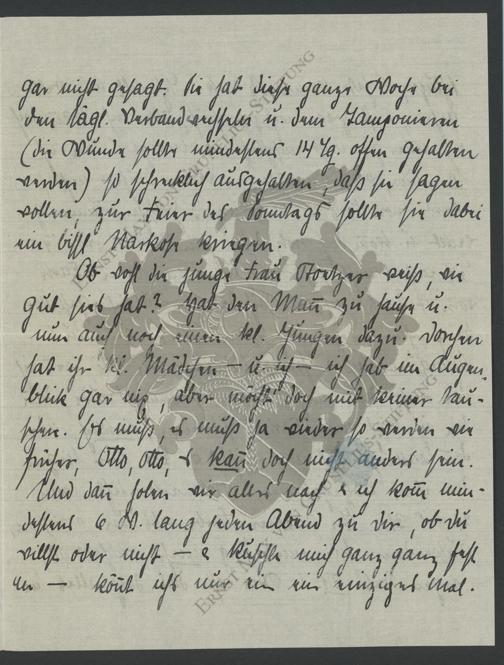 gar nicht gesagt. Sie hat diese ganze Woche bei
den tägl. Verbandwechseln u. dem Tamponieren
(die Wunde sollte mindestens 14 Tg. offen gehalten
werden) so schrecklich ausgehalten, daß sie sagen
wollen, zur Feier des Sonntags sollte sie dabei
ein bissl Narkose kriegen.
Ob wohl die junge Frau weiß, wie
gut sies hat? Hat den Mañ zu hause u.
nun auch noch einen kl. Jungen dazu. Dorchen
hat ihr kl. Mädchen – u. ich – ich hab im Augen-
blick gar nix, aber möcht doch mit keiner tau-
schen. Es muß, es muß ja wieder so werden wie
früher, Otto, Otto, es kañ doch nicht anders sein.
Und dañ holen wir alles nach & ich kom̃ min-
destens 6 W. lang jeden Abend zu dir, ob du
willst oder nicht – & kuschle mich ganz ganz fest
an – köñt ichs nur ein ein einziges Mal.
ERNST MACH
STIFTUNG
ERNST
STIFTUNG